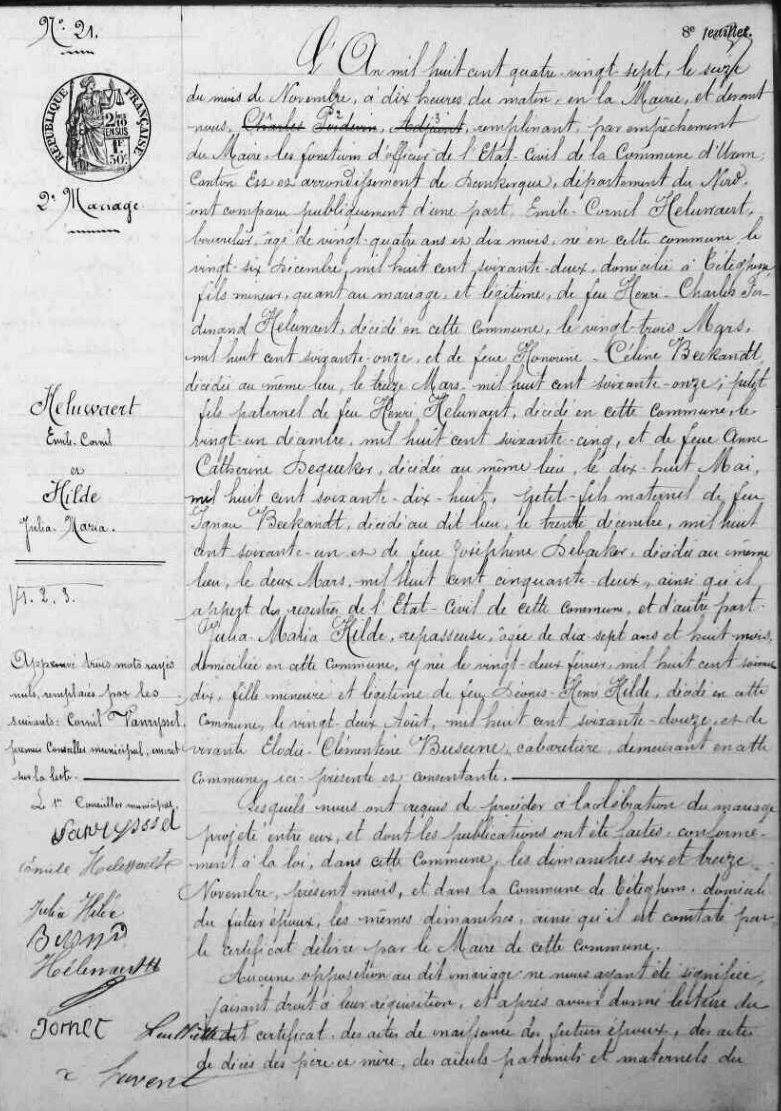 N° 21.
8e feuillet.
RÉPUBLIQUE FRANÇAISE
2e Mariage
L'An mil huit cent quatre-vingt-sept, le seize
du mois de Novembre, à dix heures du matin, en la Mairie, et devant
nous, Charles Adjoint, remplissant, par empêchement
du Maire, les fonctions d'officier de l'Etat-Civil de la Commune d'Uxem,
Canton Est et arrondissement de Dunkerque, département du Nord,
ont comparu publiquement d'une part, Emile-Cornil Heluwaert,
âgé de vingt-quatre ans et dix mois, né en cette commune, le
vingt-six Décembre, mil huit cent soixante-deux, domicilié à Téteghem,
fils mineur, quant au mariage, et légitime, de feu Henri-Charles Fer-
dinand Heluwaert, décédé en cette commune, le vingt-trois Mars,
mil huit cent soixante-onze, et de feue Honorine-Céline Beekandt,
décédée au même lieu, le treize Mars, mil huit cent soixante-onze; petit
fils paternel de feu Henri Heluwaert, décédé en cette commune, le
vingt-un décembre, mil huit cent soixante-cinq, et de feue Anne
Catherine Dequeker, décédée au même lieu, le dix-huit Mai,
mil huit cent soixante-dix-huit, petit-fils maternel de feu
Ignace Beekandt, décédé au dit lieu, le trente décembre, mil huit
cent soixante-un et de feue Joséphine Debacker, décédée au même
lieu, le deux Mars, mil huit cent cinquante-deux, ainsi qu'il
appert des registres de l'Etat-Civil de cette commune, et d'autre part
Julia-Maria Hilde, repasseuse, âgée de dix-sept ans et huit mois,
domiciliée en cette Commune, y née le vingt-deux février, mil huit cent soixante
dix, fille mineure et légitime de feu Déonis-Henri Hilde, décédé en cette
Commune, le vingt-deux Août, mil huit cent soixante-douze, et de
vivante Elodie-Clémentine Buseine, cabaretière, demeurant en cette
Commune, ici présente et consentante.
Lesquels nous ont requis de procéder à la célébration du mariage
projeté entre eux, et dont les publications ont été faites, conformé-
ment à la loi, dans cette Commune, les dimanches six et treize
Novembre, présent mois, et dans la Commune de Téteghem, domicile
du futur époux, les mêmes dimanches, ainsi qu'il est constaté par
le certificat délivré par le Maire de cette commune.
Aucune opposition au dit mariage ne nous ayant été signifiée,
faisant droit à leur réquisition, et après avoir donné lecture du
dit certificat, des actes de naissance des futurs époux, des actes
de décès des père et mère, des aïeuls paternels et maternels du
Heluwaert
Emile-Cornil
et
Hilde
Julia-Maria.
1. 2. 3.
Approuvé trois mots rayés
nuls, remplacés par les
suivants: Cornil Vanryssel,
premier Conseiller municipal, inscrit
sur la liste.
Le 1er Conseiller municipal,
Vanryssel
Julia Hilde
Jornet